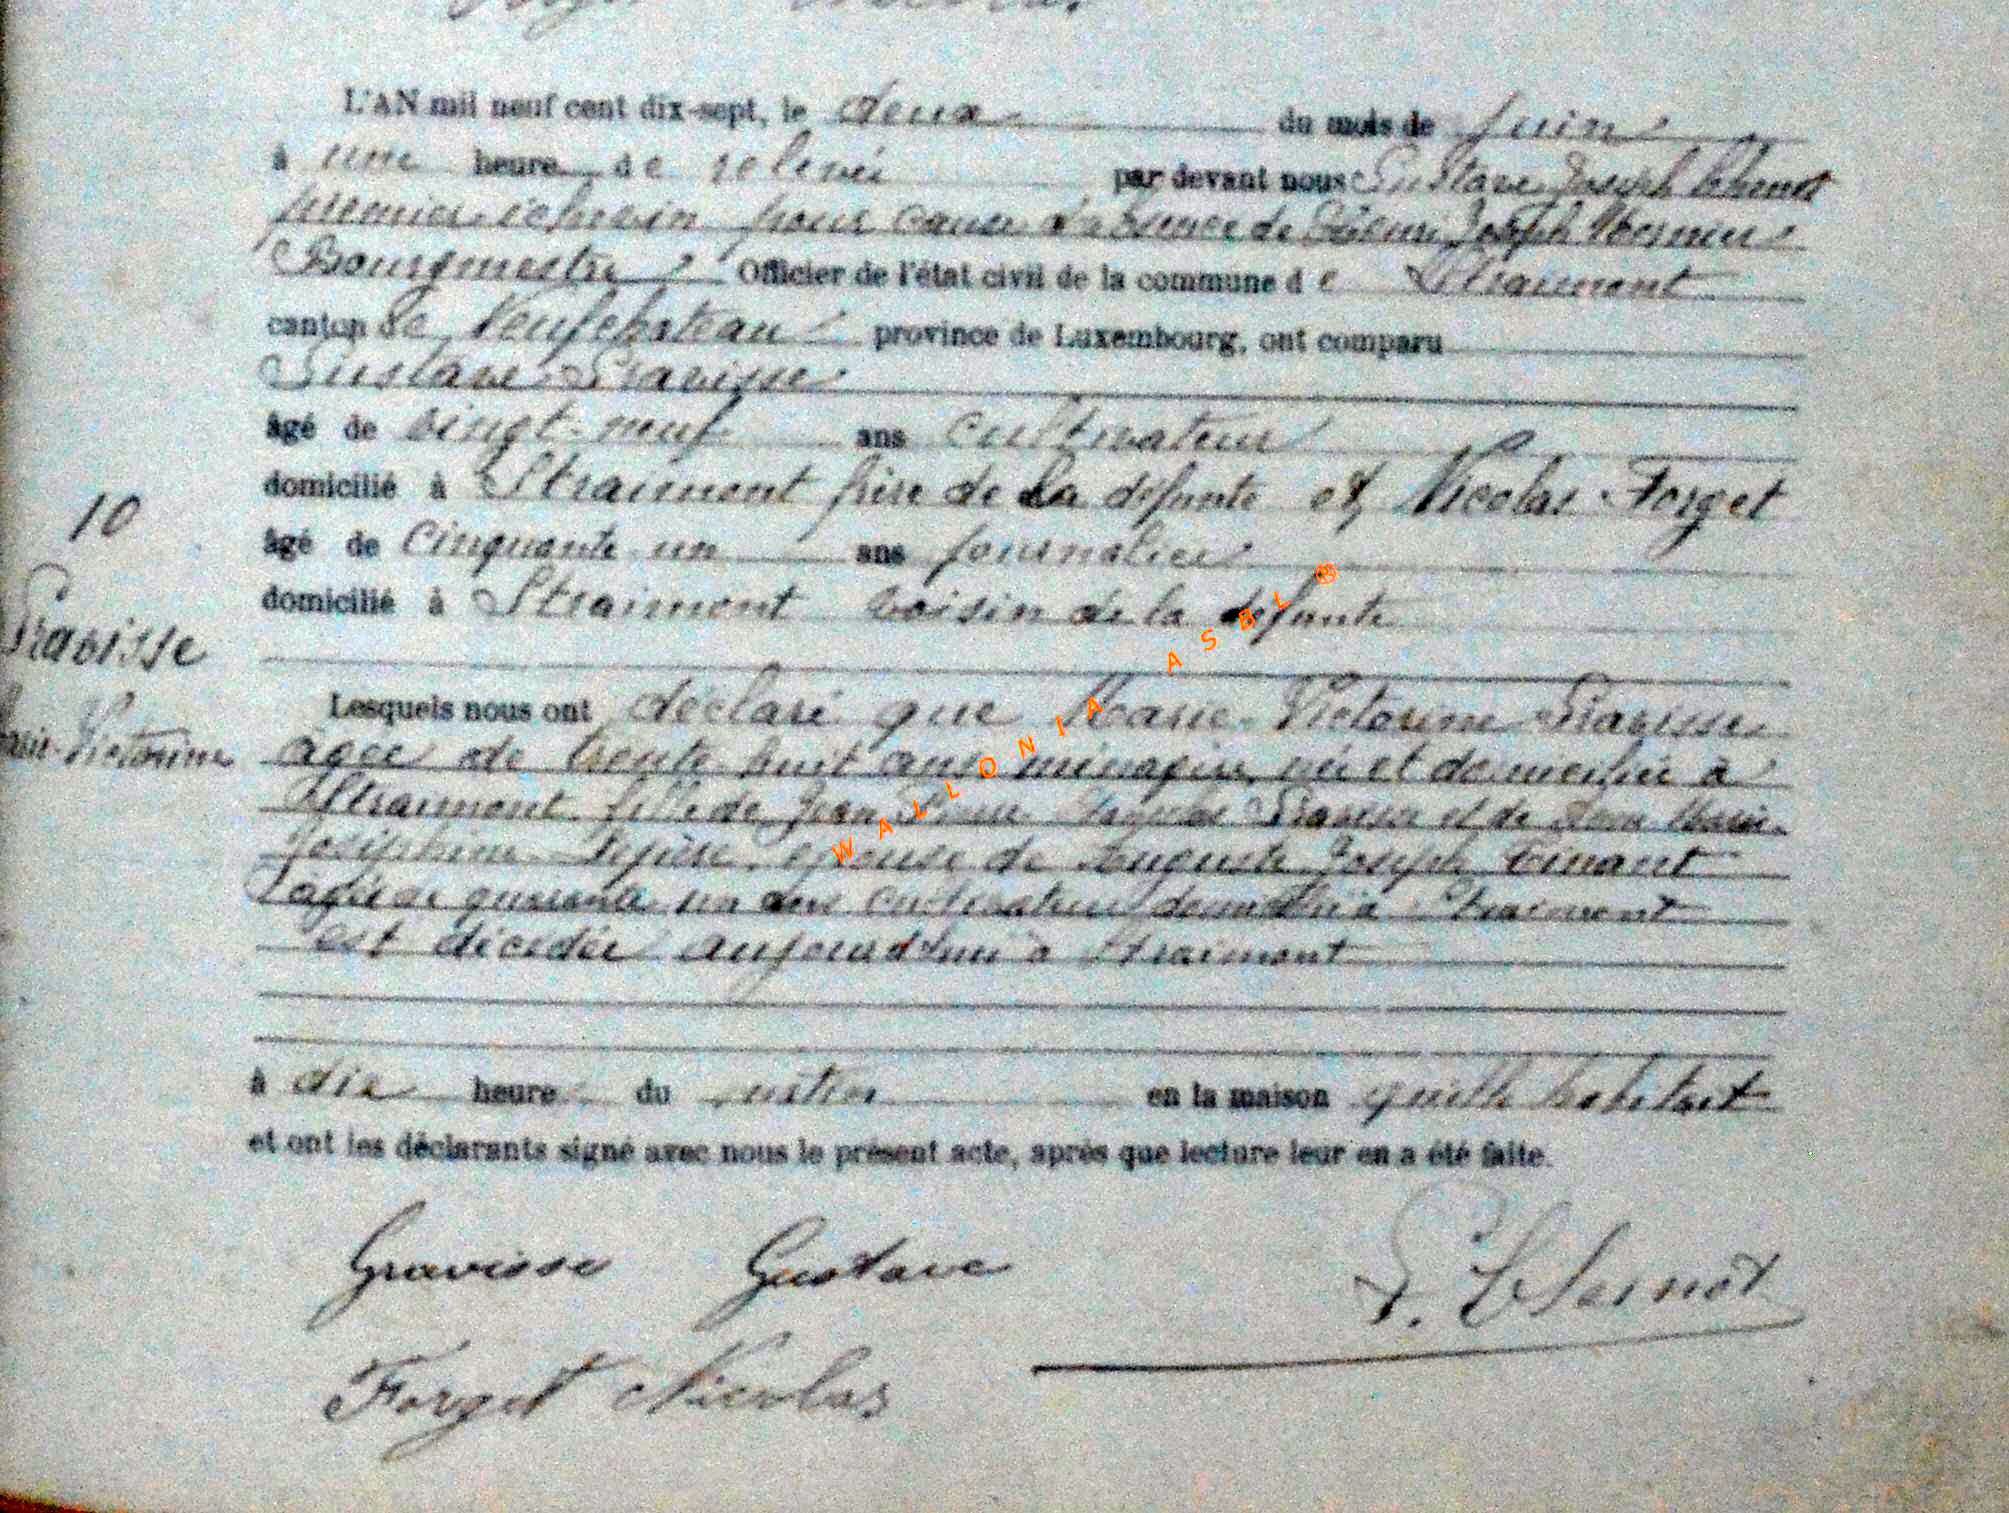 L'AN mil neuf cent dix-sept, le deux du mois de juin
à une heure de relevée par devant nous Gustave Joseph
premier échevin pour cause d'absence de Joseph
Bourgmestre Officier de l'état civil de la commune de Straimont
canton de Neufchateau province de Luxembourg, ont comparu
Gustave Gravisse
âgé de vingt-neuf ans cultivateur
domicilié à Straimont frère de la defunte et, Nicolas Forget
10
âgé de cinquante un ans journalier
domicilié à Straimont voisin de la defunte
Gravisse
Marie-Victorine
Lesquels nous ont déclaré que Marie-Victorine Gravisse
agée de trente huit ans ménagère, née et domiciliée à
Straimont fille de Jean Gravisse et de Marie-
Joséphine épouse de Auguste Joseph Tinant
âgé de quarante un ans cultivateur domicilié à Straimont
est décédée aujourd'hui à Straimont
à dix heure du matin en la maison qu'elle habitait
et ont les déclarants signé avec nous le présent acte, après que lecture leur en a été faite.
Gravisse Gustave
Forget Nicolas
WALLONIA ASBL ®